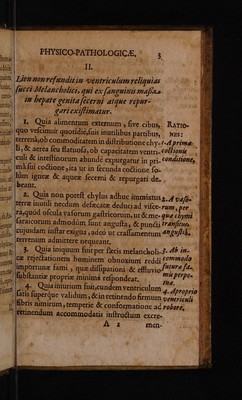 PHYSICO-PATHOLOGICÆ. 3
II.
Lien non refundit in ventriculum reliquias
succi Melancholici, qui ex sanguinis massa
in hepate genita secerni atque repur-
gari existimatur.
1. Quia alimentum externum, sive cibus,
quo vescimur quotidie, suis inutilibus partibus,
terrenâ, ob commoditatem in distributione chy-
li, & aerea seu flatuosâ, ob capacitatem ventri-
culi & intestinorum abunde expurgatur in pri-
mâ sui coctione, ita ut in secunda coctione so-
lùm igneæ & aqueæ secerni & repurgari de-
beant.
RATIO-
NES:
1. à primæ
coctionis
conditione,
2. Quia non potest chylus adhuc immistus
terræ inutili needum delicatæ deduci ad visce-
ra, quòd oscula vasorum gastricorum, ut & me-
saraicorum admodum sunt angusta, & punctis
cujusdam instar exigua, adeo ut crassamentum
terrenum admittere nequeant.
2. A vaso-
rum, per
quæ chymi
transitus,
angustiâ,
3. Quia iniquum fuit per fæcis melancholi-
cæ rejectationem hominem obnoxium reddi
importunæ fami, quæ dissipationi & effluvio
substantiæ propriæ minimè respondeat.
3. Ab in-
commodo
futuræ fa-
mis perpe-
tuæ.
4. Quia injurium fuit, eundem ventriculum
satis superque validum, & in retinendo firmum
fibris nimirum, temperie & conformatione ad
retinendum accommodatis instructum excre-
4. A proprio
ventriculi
robore.
A 2 men-